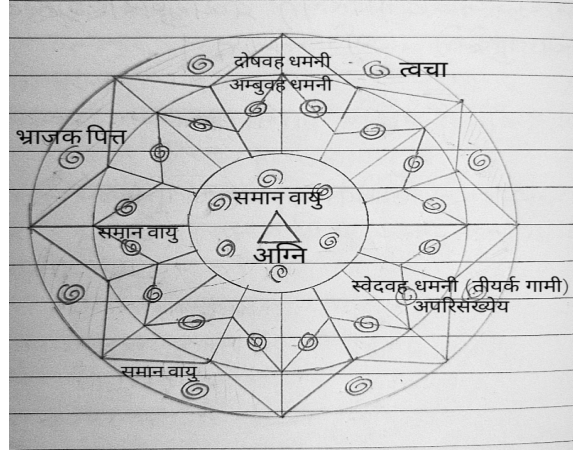 दोषवह धमनी
त्वचा
अम्बुवह धमनी
भ्राजक पित्त
समान वायु
समान वायु
अग्नि
स्वेदवह धमनी (तीयर्क गामी)
अपरिसंख्येय
समान वायु